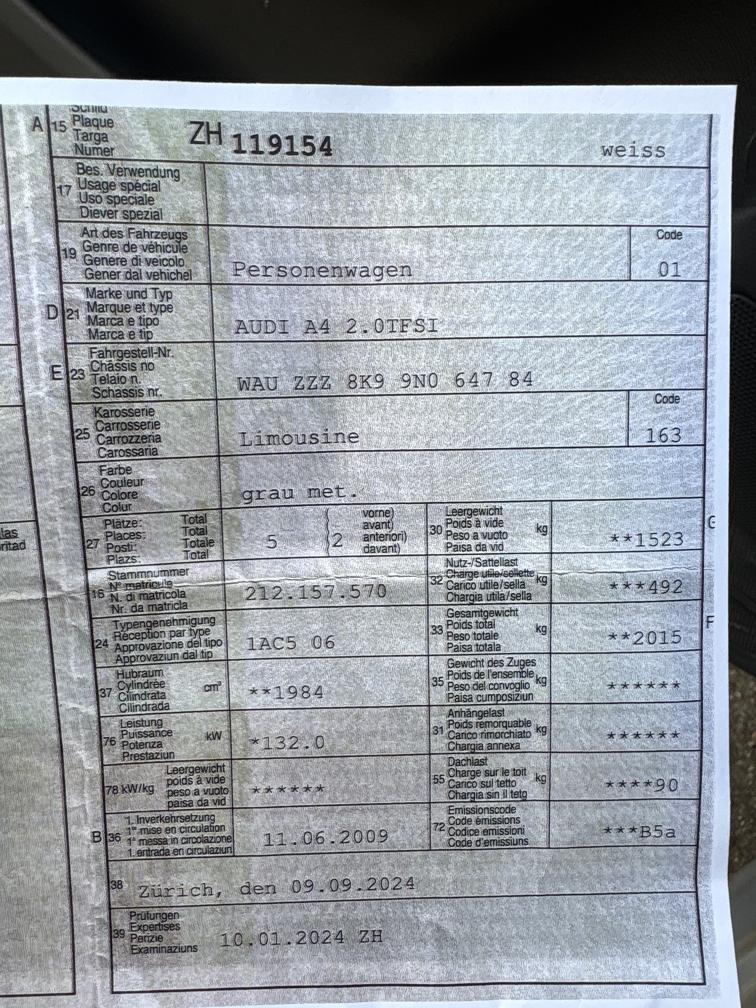 A 15 Schild
Plaque
Targa
Numer
ZH 119154 weiss
17 Bes. Verwendung
Usage spécial
Uso speciale
Diever spezial
19 Art des Fahrzeugs
Genre de véhicule
Genere di veicolo
Gener dal vehichel
Personenwagen
Code
01
D 21 Marke und Typ
Marque et type
Marca e tipo
Marca e tip
AUDI A4 2.0TFSI
E 23 Fahrgestell-Nr.
Châssis no
Telaio n.
Schassis nr.
WAU ZZZ 8K9 9N0 647 84
25 Karosserie
Carrosserie
Carrozzeria
Carossaria
Limousine
Code
163
26 Farbe
Couleur
Colore
Colur
grau met.
27 Plätze: Total
Places: Total
Posti: Totale
Plazs: Total
5 2 vorne)
avant)
anteriori)
davant)
30 Leergewicht
Poids à vide
Peso a vuoto
Paisa da vid
kg
**1523
G
18 Stammnummer
N° matricule
N. di matricola
Nr. da matricla
212.157.570
32 Nutz-/Sattellast
Charge utile/sellette
Carico utile/sella
Chargia utila/sella
kg
***492
24 Typengenehmigung
Réception par type
Approvazione del tipo
Approvaziun dal tip
1AC5 06
33 Gesamtgewicht
Poids total
Peso totale
Paisa totala
kg
**2015
F
37 Hubraum
Cylindrée
Cilindrata
Cilindrada
cm³
**1984
35 Gewicht des Zuges
Poids de l'ensemble
Peso del convoglio
Paisa cumposiziun
kg
******
76 Leistung
Puissance
Potenza
Prestaziun
kW
*132.0
31 Anhängelast
Poids remorquable
Carico rimorchiato
Chargia annexa
kg
******
78 kW/kg Leergewicht
poids à vide
peso a vuoto
paisa da vid
******
55 Dachlast
Charge sur le toit
Carico sul tetto
Chargia sin il tetg
kg
****90
B 36 1. Inverkehrsetzung
1re mise en circulation
1a messa in circolazione
1. entrada en circulaziun
11.06.2009
72 Emissionscode
Code émissions
Codice emissioni
Code d'emissiuns
***B5a
38 Zürich, den 09.09.2024
39 Prüfungen
Expertises
Perizie
Examinaziuns
10.01.2024 ZH